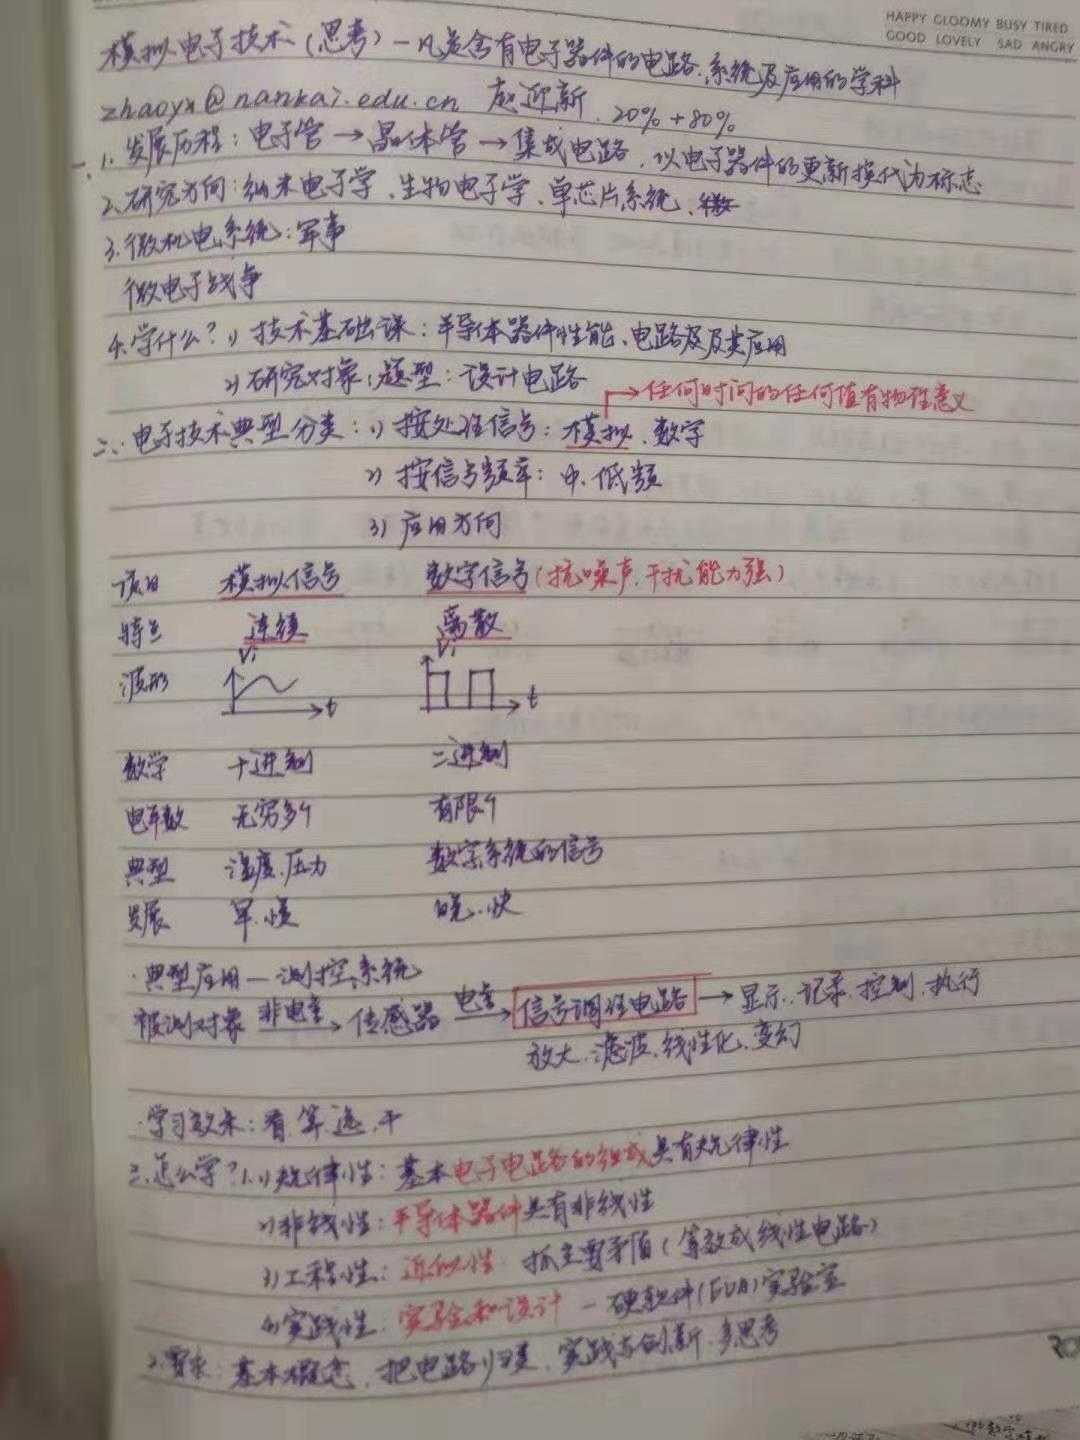 HAPPY GLOOMY BUSY TIRED
GOOD LOVELY SAD ANGRY
模拟电子技术(思考)—凡是含有电子器件的电路、系统及应用的学科
zhaoyx@nankai.edu.cn 赵迎新 20%+80%
一、1.发展历程:电子管→晶体管→集成电路,以电子器件的更新换代为标志
2.研究方向:纳米电子学、生物电子学、单芯片系统、
3.微机电系统:军事
微电子战争
4.学什么?1)技术基础课:半导体器件性能、电路及及其应用
2)研究对象,题型:设计电路
→任何时间的任何值有物理意义
二、电子技术典型分类:1)按处理信号:模拟、数字
2)按信号频率:中、低频
3)应用方向
项目 模拟信号 数字信号(抗噪声、干扰能力强)
特点 连续 离散
波形 Vi t Vi t
数学 十进制 二进制
电平数 无穷多个 有限个
典型 温度、压力 数字系统的信号
发展 早、慢 晚、快
·典型应用—测控系统
被测对象 非电量→传感器 电量→信号调理电路→显示、记录、控制、执行
放大、滤波、线性化、变幻
·学习效果:看、算、选、干
三、怎么学?1.1)规律性:基本电子电路的组成具有规律性
2)非线性:半导体器件具有非线性
3)工程性:近似性 抓主要矛盾(等效成线性电路)
4)实践性:实验和设计—硬软件(EDA)实验室
2.要求:基本概念、把电路归类、实践与创新、多思考